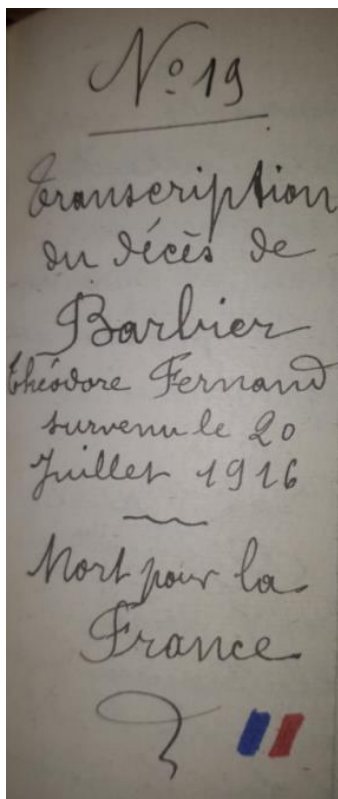 N° 19
Transcription
du décès de
Barbier
Théodore Fernand
survenu le 20
Juillet 1916
Mort pour la
France